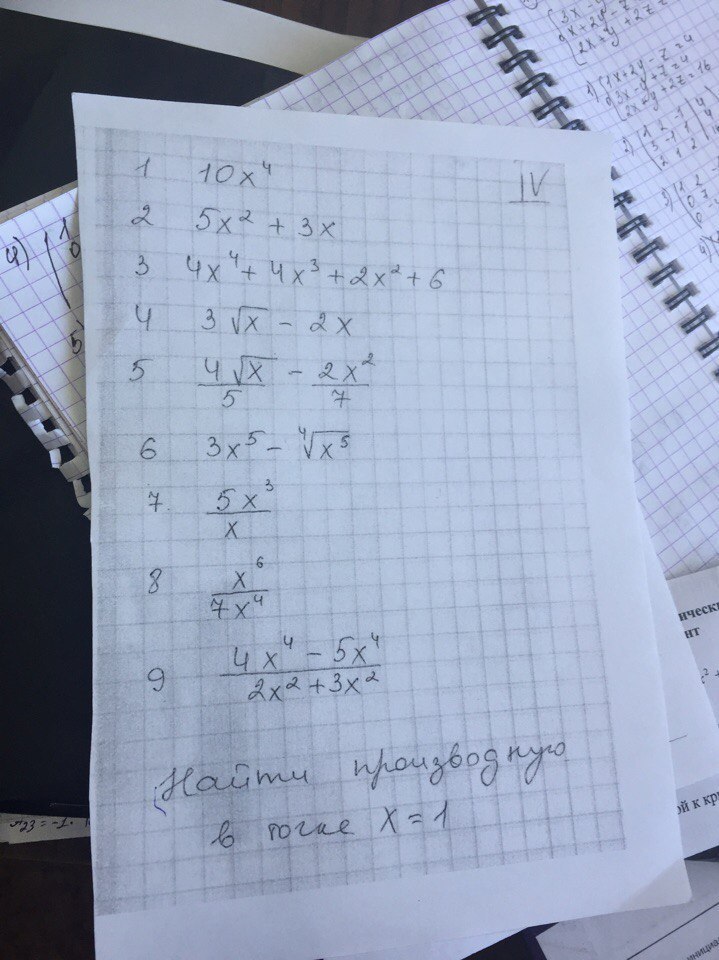 IV
1 10x⁴
2 5x² + 3x
3 4x⁴ + 4x³ + 2x² + 6
4 3√x - 2x
5 4√x/5 - 2x²/7
6 3x⁵ - ⁴√x⁵
7 5x³/x
8 x⁶/7x⁴
9 (4x⁴ - 5x⁴)/(2x² + 3x²)
Найти производную
в точке x = 1
4)
5)
1)
1x+2y-z=4
3x-y+z=4
2x+y+2z=16
2)